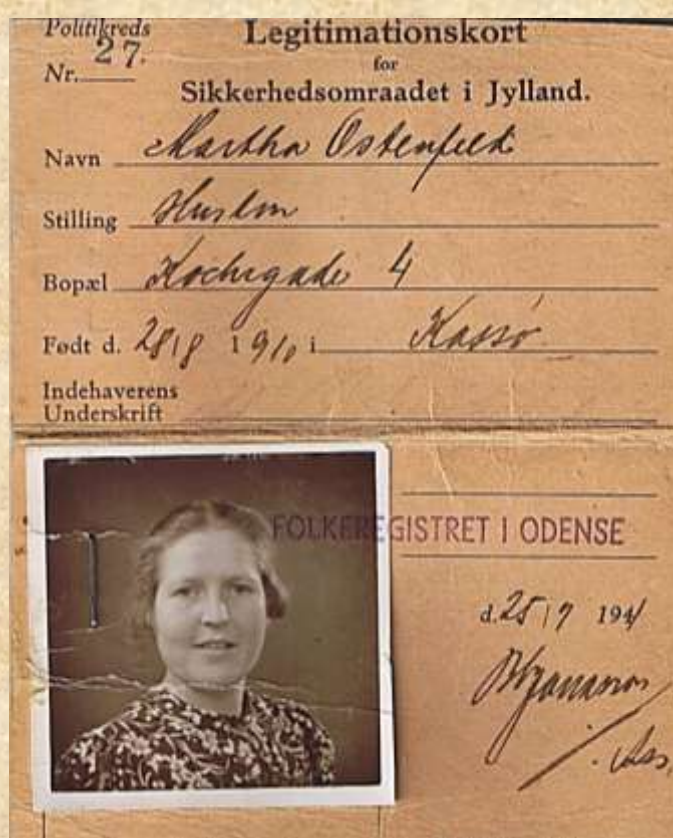 Politikreds
Legitimationskort
Nr. 27.
for
Sikkerhedsomraadet i Jylland.
Navn Martha Ostenfeldt
Stilling Hustru
Bopæl Kochsgade 4
Født d. 28/8 1910 i Kassø
Indehaverens
Underskrift
FOLKEREGISTRET I ODENSE
d. 25/7 1941
/. Ass.